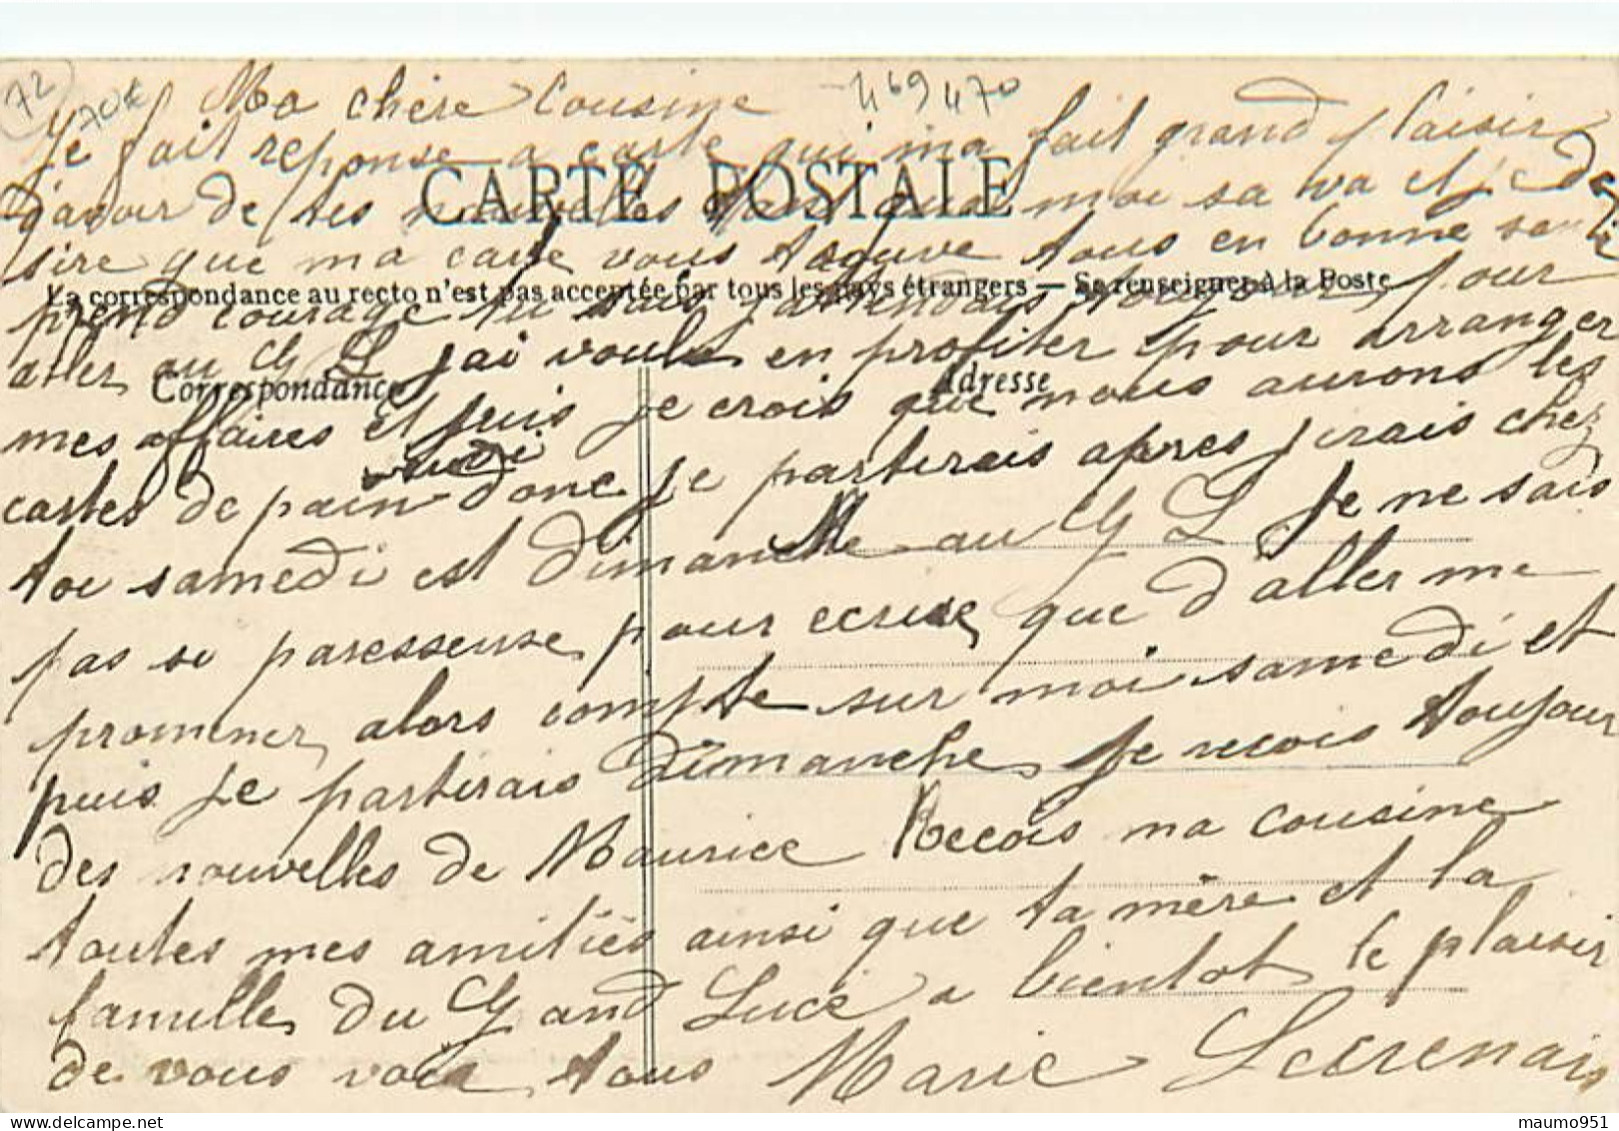 72
70k
469 470
Ma chère Cousine
Je fait reponse a carte qui ma fait grand plaisir
d'avoir de tes nouvelles quai moi sa va et je de
CARTE POSTALE
sire que ma carte vous trouve tous en bonne san
La correspondance au recto n'est pas acceptée par tous les pays étrangers — Se renseigner à la Poste
prend courage tu sais jattendais toujours pour
aller au G L j'ai voulu en profiter pour arranger
Correspondance
Adresse
mes affaires et puis je crois que nous aurons les
cartes de pain donc je partirais apres jirais chez
toi samedi est dimanche au G L Je ne sais
pas si paresseuse pour ecrire que d aller me
prommner alors compte sur moi samedi et
puis je partirais dimanche Je recois toujour
des nouvelles de Maurice Recois ma cousine
toutes mes amitiés ainsi que ta mère et la
famille du Grand Lucé a bientot le plaisir
de vous voir tous Marie
maumo951